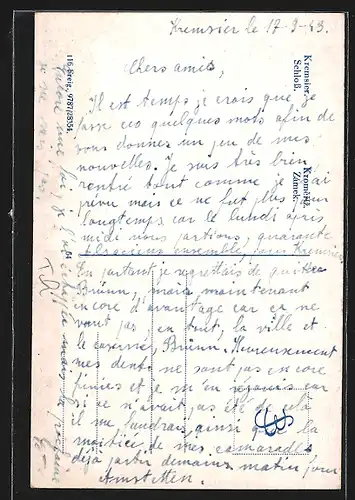 Kremsier le 17-9-43
Chers amis,
Il est temps je crois que je
fasse ces quelques mots afin de
vous donner un peu de mes
nouvelles. Je suis très bien
rentré tout comme je l'ai
prévu mais ce ne fut plus pour
longtemps car le lundi après
midi nous partions quarante
ensemble pour Kremsier
En partant je regrettais de quitter
Brünn, mais maintenant
encore d'avantage car ça ne
vaut pas en tout, la ville et
la caserne, Brünn. Heureusement
mes dents ne sont pas encore
finies et je m'en réjouis car
si ce n'avait pas été de cela
il me faudrait ainsi que la
moitiée de mes camarades
déjà partir demain matin pour
Amstetten.
Kremsier.
Schloß.
Kroměříž.
Zámek.
116-Breiz, 9787/8554.